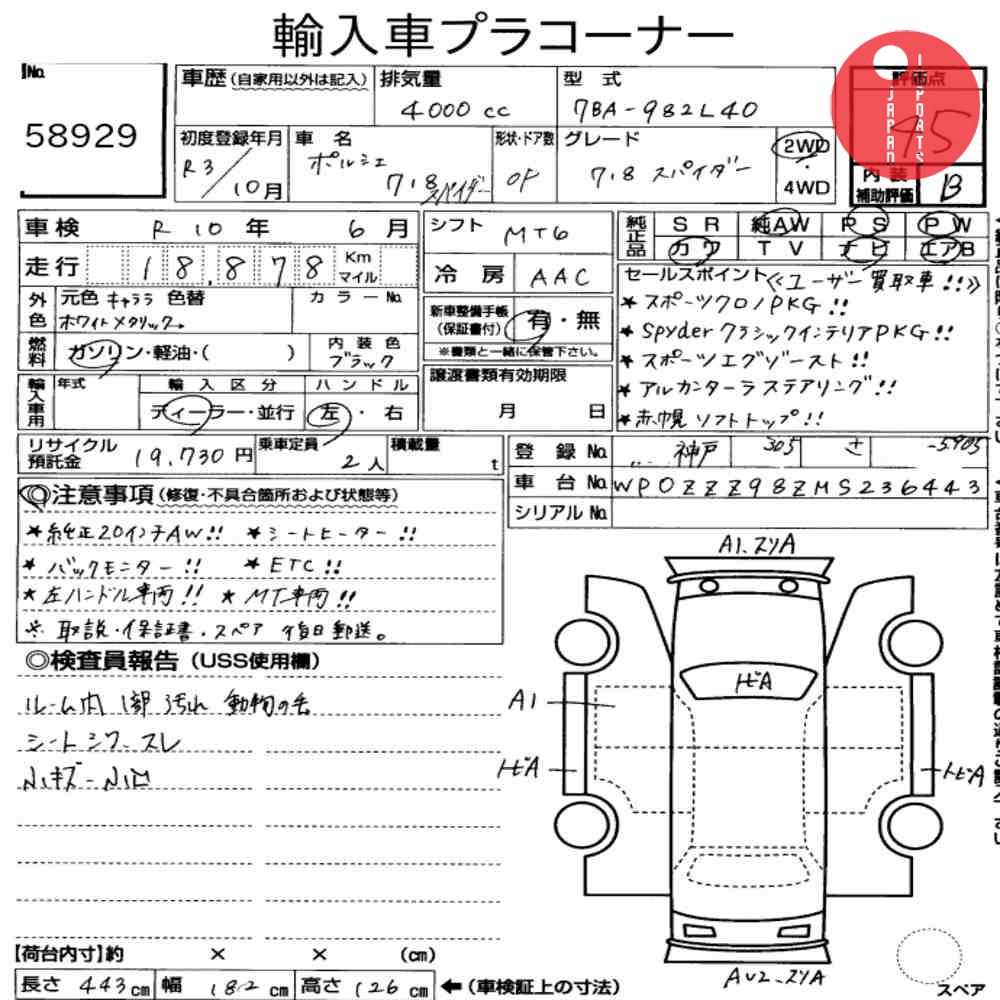 輸入車プラコーナー
No. 58929
車歴 (自家用以外は記入)
排気量 4000 cc
型式 7BA-982L40
評価点 45
JAPAN IMPORTS
初度登録年月 R3/10月
車名 ポルシェ 718 スパイダー
形状・ドア数 OP
グレード 718 スパイダー
2WD・4WD
内装 補助評価 B
車検 R10年 6月
シフト MT6
純正品 SR 純AW PS PW
カワ TV ナビ エアB
走行 18,878 Km マイル
冷房 AAC
セールスポイント 《ユーザー買取車!!》
★スポーツクロノPKG!!
★Spyderクラシックインテリア PKG!!
★スポーツエグゾースト!!
★アルカンターラステアリング!!
★赤幌 ソフトトップ!!
外色 元色 キャララ 色替
ホワイトメタリック
カラーNo.
新車整備手帳 (保証書付) 有・無
※書類と一緒に保管下さい。
燃料 ガソリン・軽油・( )
内装色 ブラック
譲渡書類有効期限
月 日
輸入車用 年式
輸入区分 ディーラー・並行
ハンドル 左・右
リサイクル預託金 19,730円
乗車定員 2人
積載量 t
登録No. 神戸 305 さ -5905
車台No. WP0ZZZ98ZMS236443
シリアルNo.
◎注意事項 (修復・不具合箇所および状態等)
★純正20インチAW!! ★シートヒーター!!
★バックモニター!! ★ETC!!
★左ハンドル車両!! ★MT車両!!
※取説・保証書・スペア 後日郵送。
◎検査員報告 (USS使用欄)
ルーム内 1部 汚れ 動物の毛
シートシワ、スレ
小キズ-小凹
A1、スリA
トビA
A1
トビA
トビA
AU2、スリA
スペア
【荷台内寸】約 × × (cm)
長さ 443cm 幅 182cm 高さ 126cm ←(車検証上の寸法)